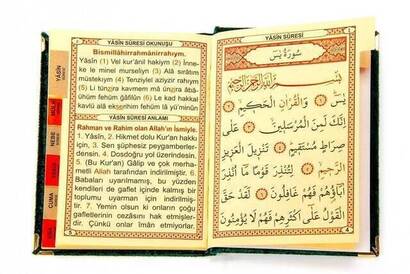 YÂSÎN SÛRESİ OKUNUŞU
Bismillâhirrahmânirrahîym.
Yâsîn (1) Vel kur'ânil hakiym (2) İnne-
ke le minel murseliyn (3) Alâ sırâtım
müstekıym (4) Tenziylel aziyzir rahıym.
(5) Li tünzira kavmem mâ ünzira âbâ-
ühüm fehüm ğâfilûn (6) Le kad hakkal
kavlü alâ ekserihim fehüm lâ yü'minûn
YÂSÎN SÛRESİ ANLAMI
Rahman ve Rahim olan Allah'ın İsmiyle.
1. Yâsîn, 2. Hikmet dolu Kur'an hakkı
için, 3. Sen şüphesiz peygamberler-
densin. 4. Dosdoğru yol üzerindesin.
5. (Bu Kur'an) Gâlip ve çok merha-
metli Allah tarafından indirilmiştir. 6.
Babaları uyarılmamış, bu yüzden
kendileri de gaflet içinde kalmış bir
toplumu uyarman için indirilmiş-
tir. 7. Yemin olsun ki onların çoğu
gafletlerinin cezasını hak etmişler-
dir. Çünkü onlar îman etmiyorlar.
YÂSÎN
NEBE
CUMA
YÂSÎN SÛRESİ
سُورَةُ يٰسٓ
بِسْمِ اللّٰهِ الرَّحْمٰنِ الرَّحِيمِ
يٰسٓ ﴿١﴾ وَالْقُرْاٰنِ الْحَكِيمِ ﴿٢﴾
اِنَّكَ لَمِنَ الْمُرْسَلِينَ ﴿٣﴾ عَلٰى
صِرَاطٍ مُسْتَقِيمٍ ﴿٤﴾ تَنْزِيلَ الْعَزِيزِ
الرَّحِيمِ ﴿٥﴾ لِتُنْذِرَ قَوْمًا مَٓا اُنْذِرَ
اٰبَٓاؤُ۬هُمْ فَهُمْ غَافِلُونَ ﴿٦﴾ لَقَدْ حَقَّ
الْقَوْلُ عَلٰٓى اَكْثَرِهِمْ فَهُمْ لَا يُؤْمِنُونَ
4